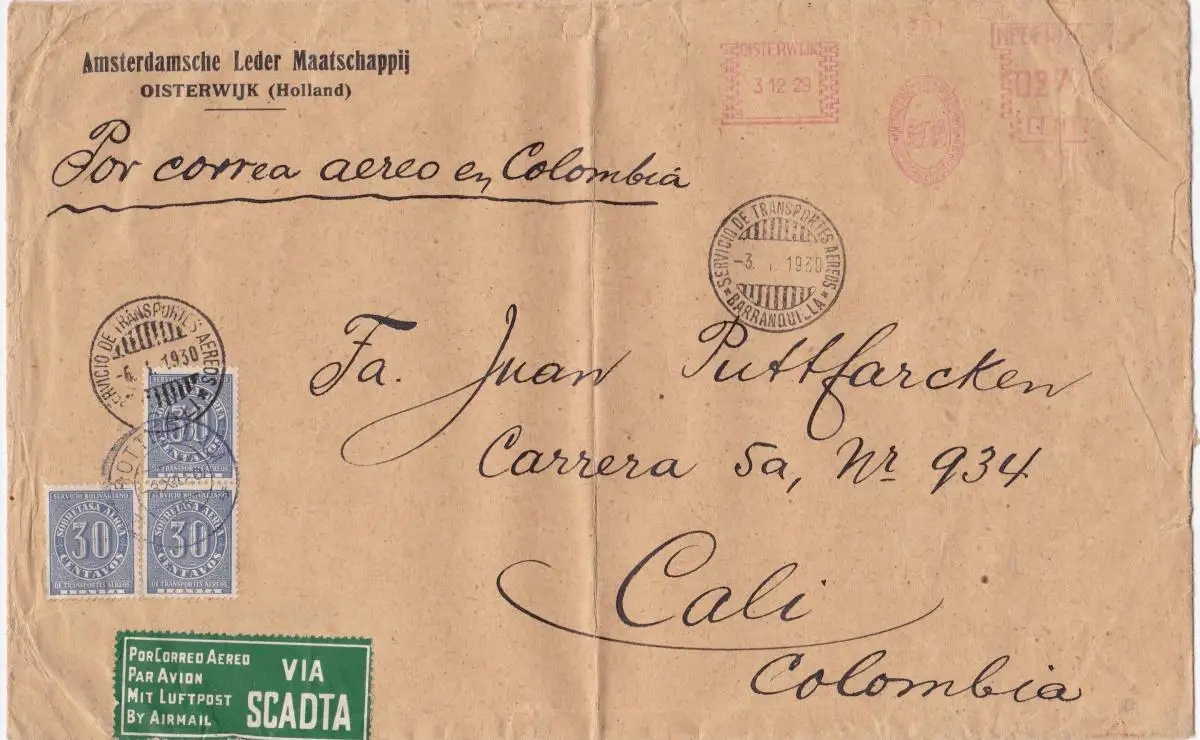 Amsterdamsche Leder Maatschappij
OISTERWIJK (Holland)
OISTERWIJK
3 12 29
Por correa aereo en Colombia
SERVICIO DE TRANSPORTES AEREOS
-3. 1930
BARRANQUILLA
Fa. Juan Puttfarcken
Carrera 5a, Nr 934
Cali
Colombia
SERVICIO DE TRANSPORTES AEREOS
6. 1. 1930
CENTAVOS
DE TRANSPORTES AEREOS
SERVICIO BOLIVARIANO
SOBRETASA AEREA
30
CENTAVOS
DE TRANSPORTES AEREOS
SCADTA
SERVICIO BOLIVARIANO
SOBRETASA AEREA
30
CENTAVOS
DE TRANSPORTES AEREOS
SCADTA
POR CORREO AEREO
PAR AVION
MIT LUFTPOST
BY AIRMAIL
VIA
SCADTA